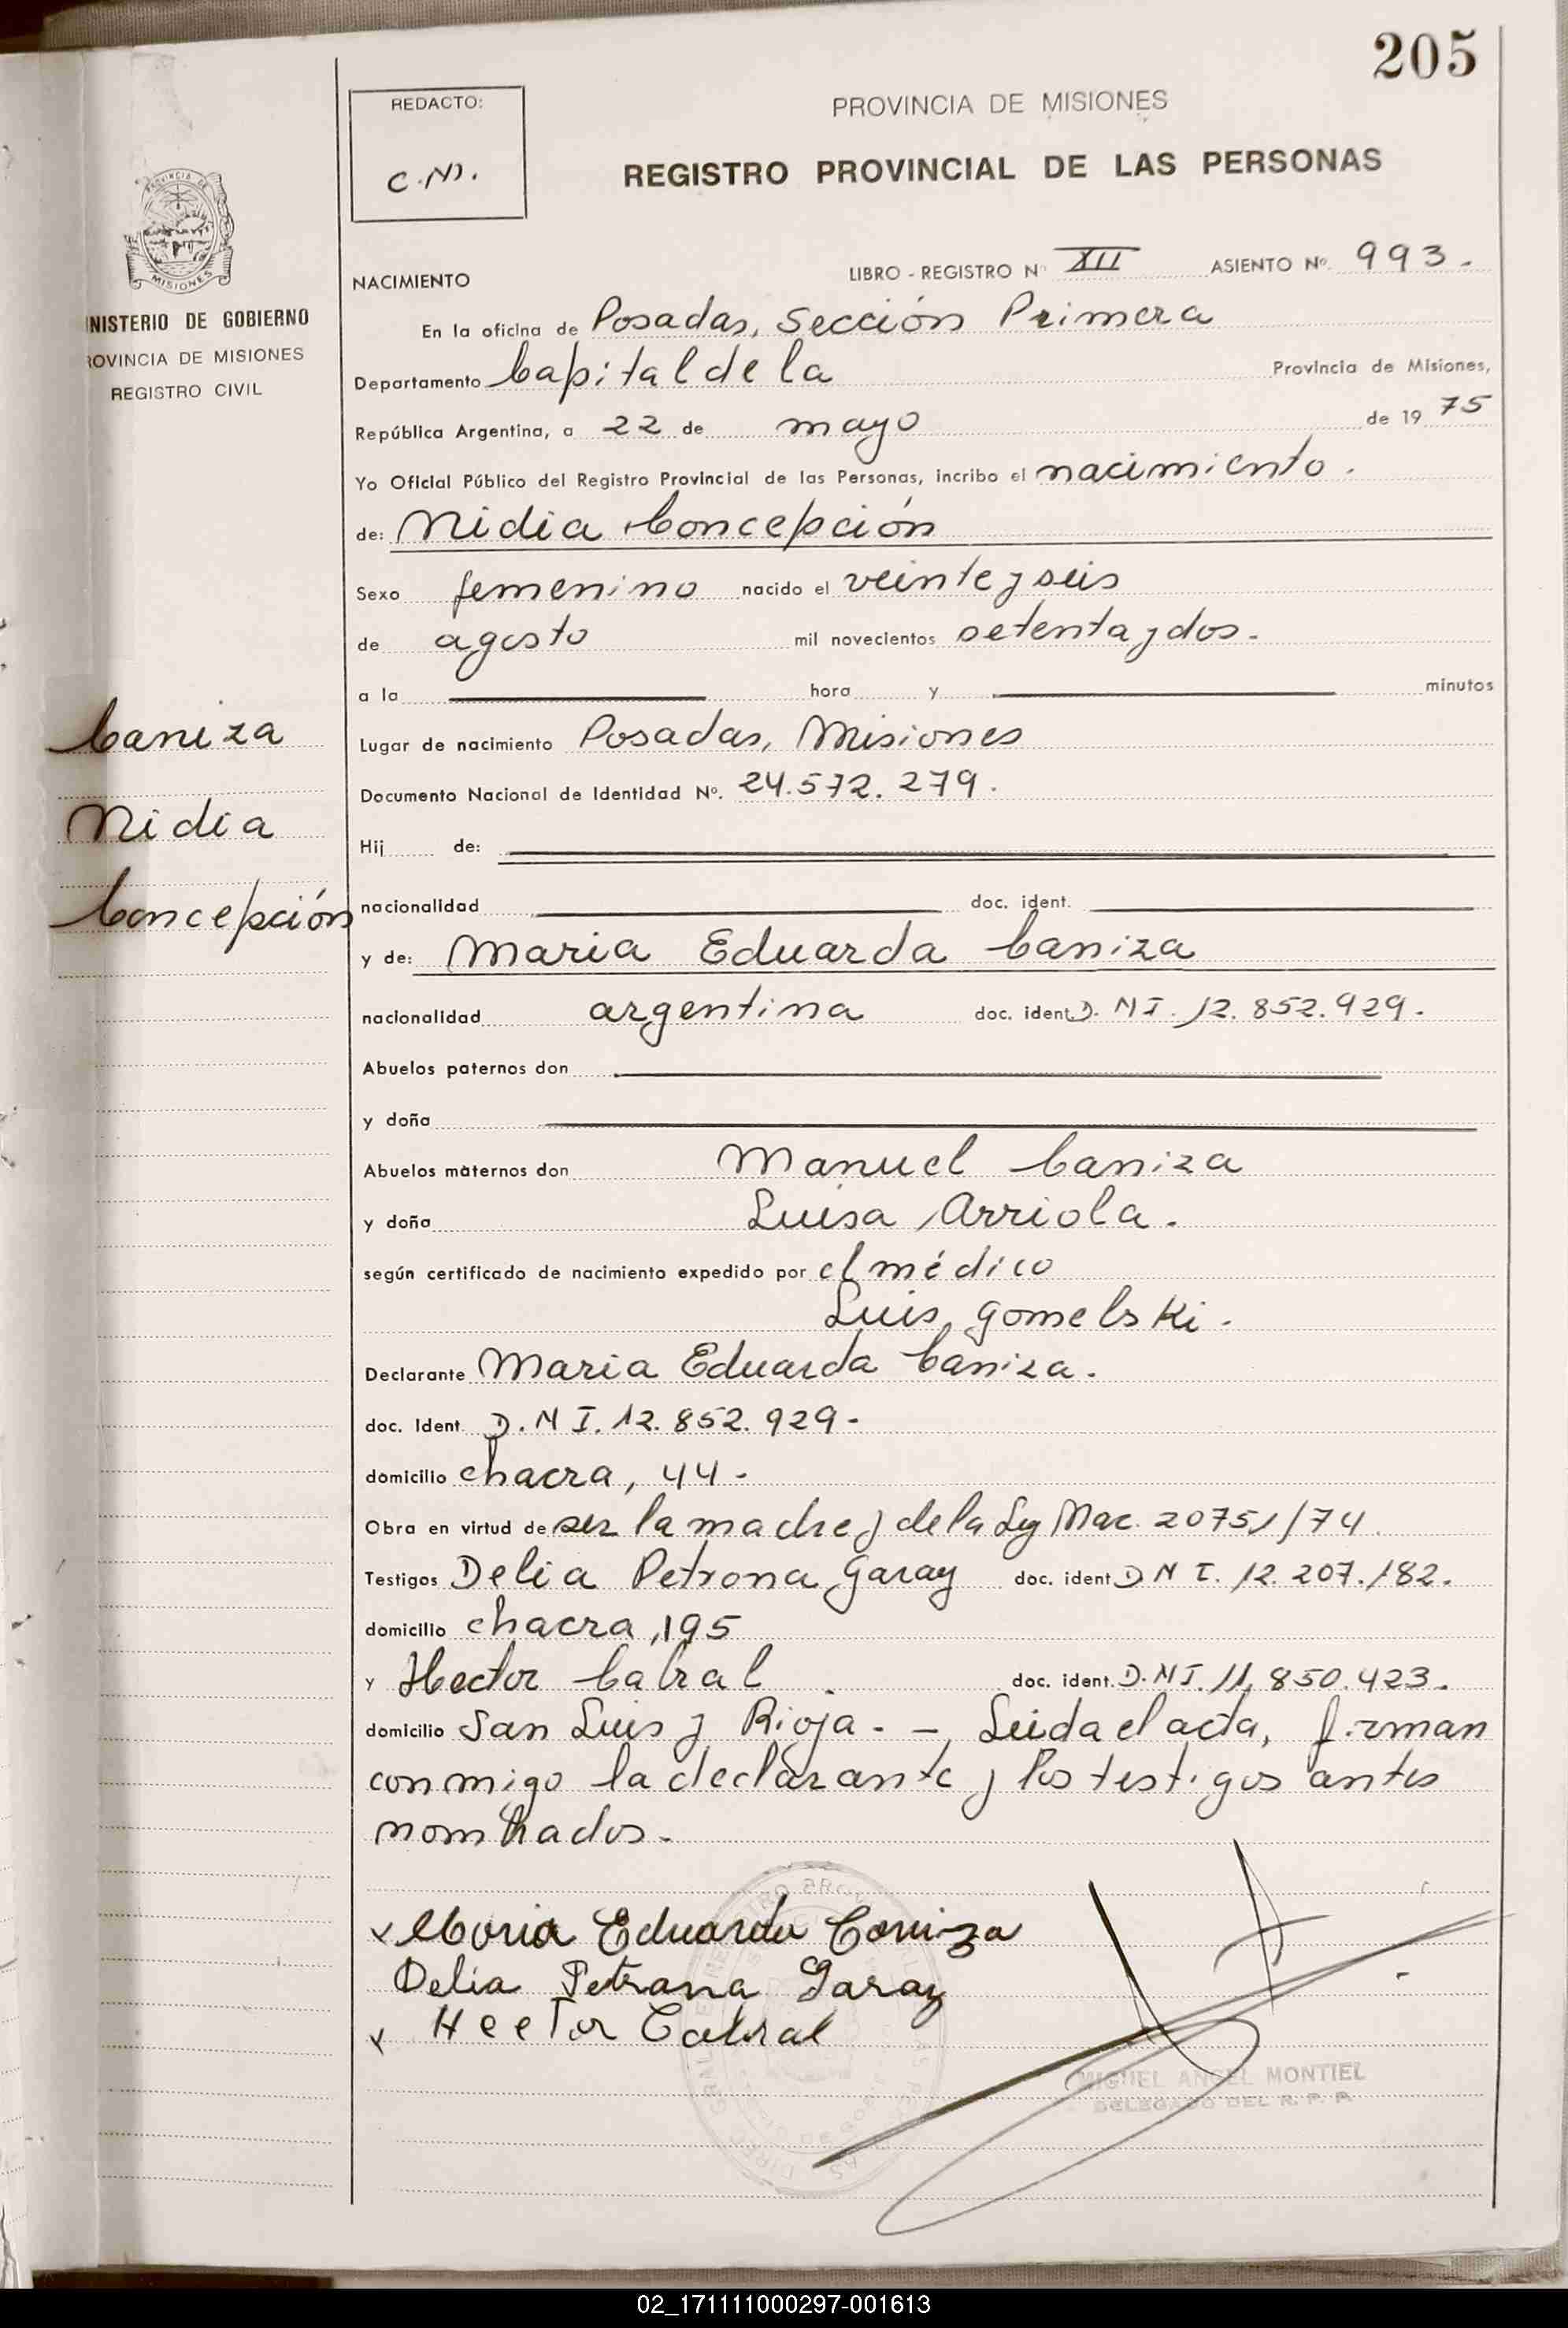 205
REDACTO:
C.N.
PROVINCIA DE MISIONES
REGISTRO PROVINCIAL DE LAS PERSONAS
PROVINCIA DE
MISIONES
INISTERIO DE GOBIERNO
ROVINCIA DE MISIONES
REGISTRO CIVIL
NACIMIENTO LIBRO - REGISTRO Nº XII ASIENTO Nº. 993.
En la oficina de Posadas, Sección Primera
Departamento Capital de la Provincia de Misiones,
República Argentina, a 22 de mayo de 19 75
Yo Oficial Público del Registro Provincial de las Personas, incribo el nacimiento.
de: Nidia Concepción
Sexo femenino nacido el veinte y seis
de agosto mil novecientos setenta y dos.
a la hora y minutos
Caniza
Nidia
Concepción
Lugar de nacimiento Posadas, Misiones
Documento Nacional de Identidad Nº. 24.572.279.
Hij de:
nacionalidad doc. ident.
y de: Maria Eduarda Caniza
nacionalidad argentina doc. ident D.N.I. 12.852.929.
Abuelos paternos don
y doña
Abuelos maternos don Manuel Caniza
y doña Luisa Arriola.
según certificado de nacimiento expedido por el médico
Luis Gomelski.
Declarante Maria Eduarda Caniza.
doc. Ident. D.N I. 12.852.929-
domicilio chacra, 44-
Obra en virtud de ser la madre y de la Ley Nac. 20751/74.
Testigos Delia Petrona Garay doc. ident D N I. 12.207.182.
domicilio chacra, 195
y Hector Cabral. doc. ident. D.N I. 11,850.423.
domicilio San Luis y Rioja. - Leida el acta, firman
conmigo la declarante y los testigos antes
nombrados.
x Maria Eduarda Caniza
Delia Petrona Garay
x Hector Cabral
MIGUEL ANGEL MONTIEL
DELEGADO DEL R. P. P.
02_171111000297-001613